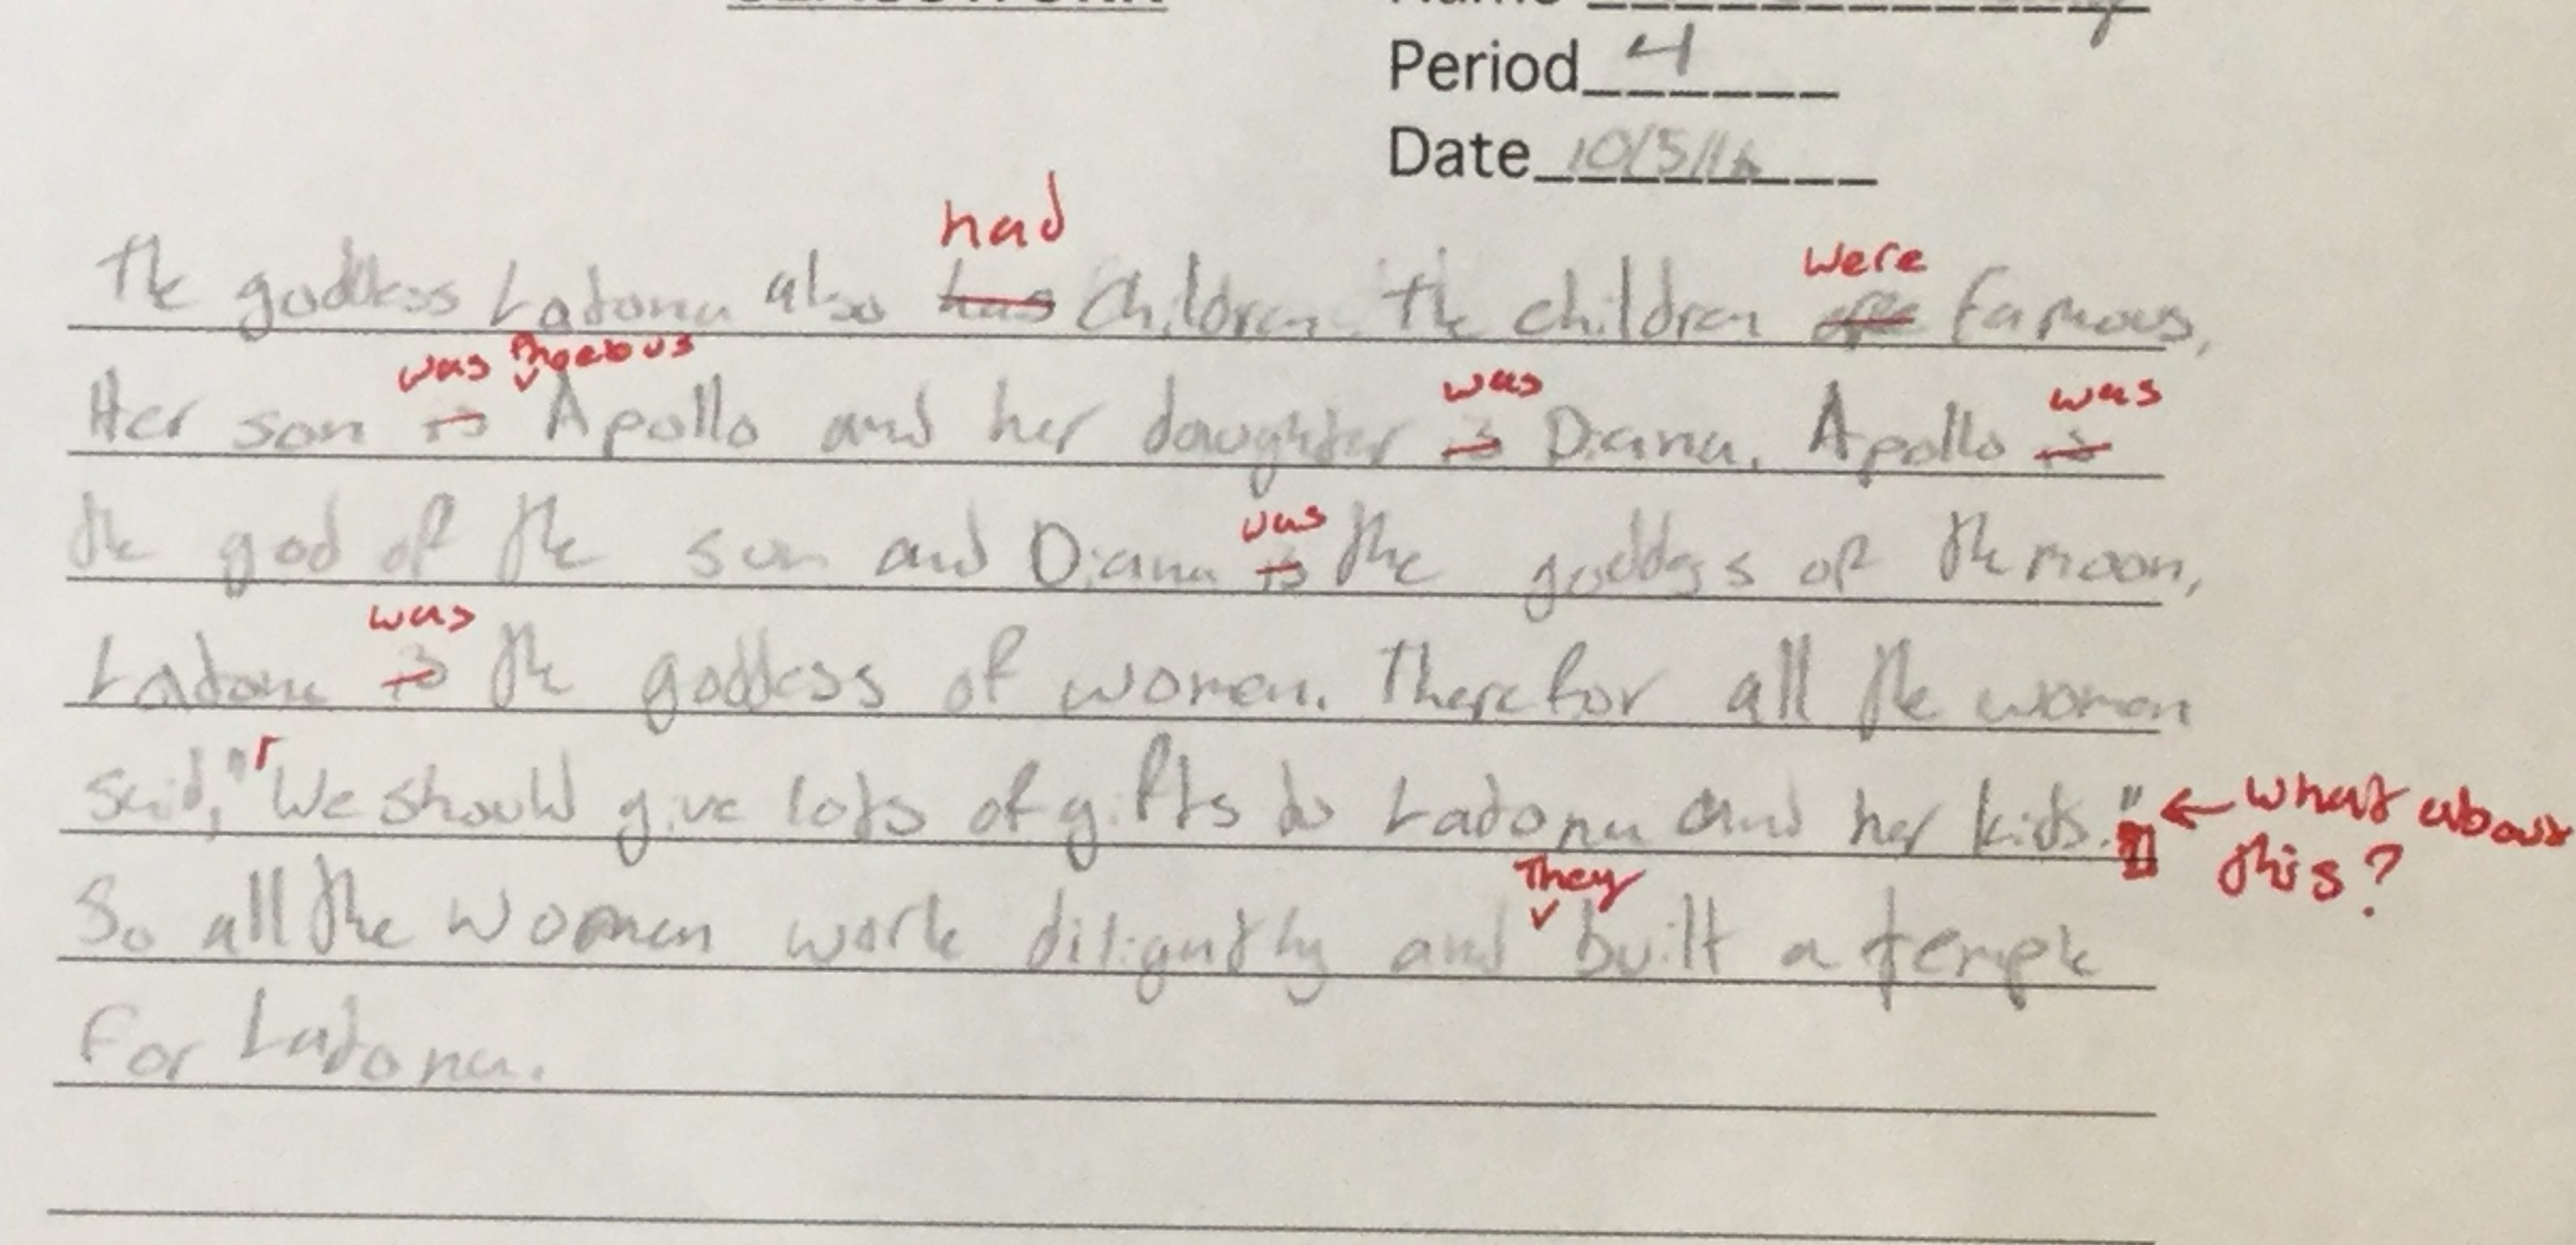 Name
Period 4
Date 10/5/16
had were
The goddess Latona also has children. The children are famous,
was Phoebus was was
Her son is Apollo and her daughter is Diana. Apollo is
was
the god of the sun and Diana is the goddess of the moon,
was
Latona is the goddess of women. Therefor all the women
said, "We should give lots of gifts to Latona and her kids." ← What about
this?
They
So all the women work diligently and built a temple
for Latona.